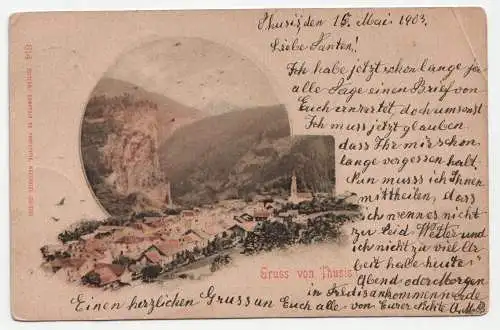 Thusis, den 15. Mai 1903.
Liebe Tanten!
Ich habe jetzt schon lange ja
alle Tage einen Brief von
Euch erwartet, doch umsonst
Ich muss jetzt glauben
dass Ihr mir schon
lange vergessen habt.
Nun muss ich Ihnen
mittheilen, dass
ich wenn es nicht
zu leid Wetter und
ich nicht zu viel Ar
beit habe heute
Abend oder Morgen
in ankommen werde
Einen herzlichen Gruss an Euch alle von Eurer Nichte A.M.B.
Gruss von Thusis
814